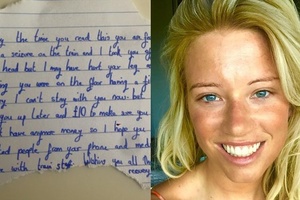 the time you read this you are
a seizure on the train and I took you
head but I may have hurt your leg
you were on the floor having a fit
I can't stay with you now but
you up later and £10 to make sure you
have anymore money so I hope you
people from your phone and
with train staff wishing you all the
recovery